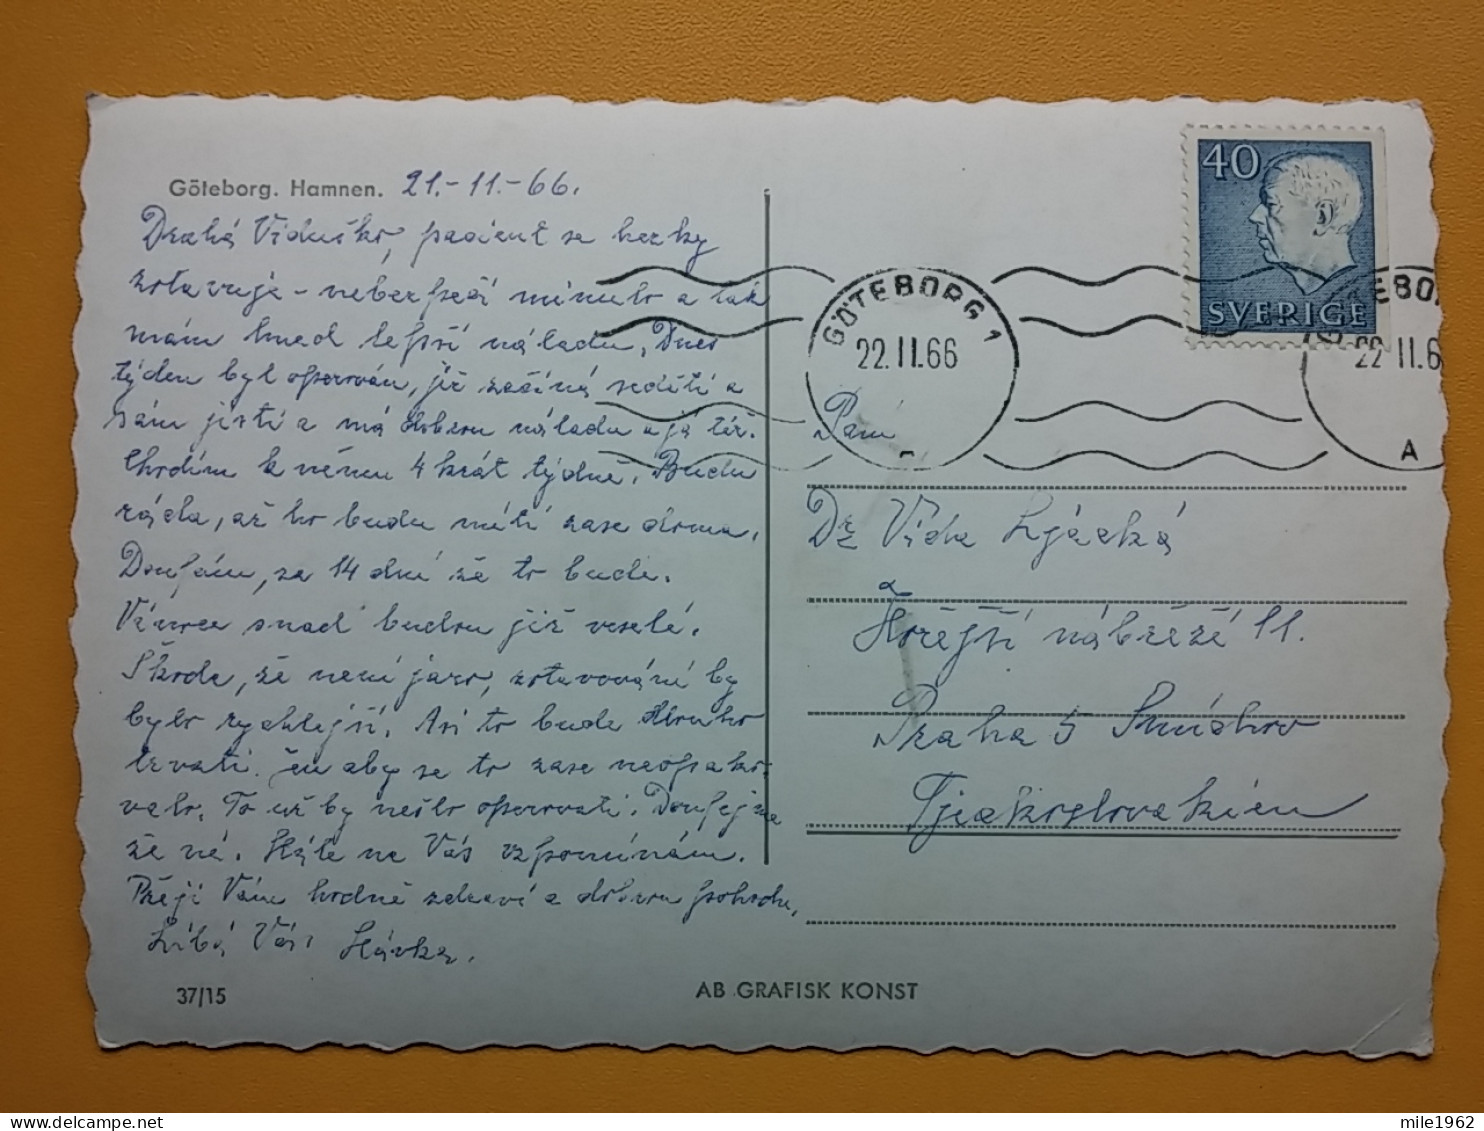 Göteborg. Hamnen. 21.-11.-66.
Drahá Viduško, pacient se hezky
zotavuje - nebezpečí minulo a tak
mám hned lepší náladu. Dnes
týden byl operován, již začíná seděti a
sám jísti a má dobrou náladu a já též.
Chodím k němu 4 krát týdně. Budu
ráda, až ho budu míti zase doma.
Doufám, za 14 dní že to bude.
Vánoce snad budou již veselé.
Škoda, že není jaro, zotavování by
bylo rychlejší. Asi to bude dlouho
trvati. Jen aby se to zase neopako-
valo. To už by nešlo operovati. Doufejme
že né. Stále na Vás vzpomínám.
Přeji Vám hodně zdraví a dobrou pohodu.
Líbá Vás Slávka.
37/15
AB GRAFISK KONST
40
SVERIGE
GÖTEBORG 1
22.11.66
22 11.6
A
Paní
Dr Vida
Hořejší nábřeží 11.
Praha 5 Smíchov
Tjeckoslovakien
mile1962